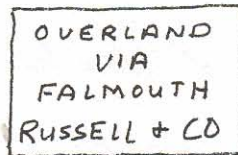 OVERLAND
VIA
FALMOUTH
RUSSELL & CO